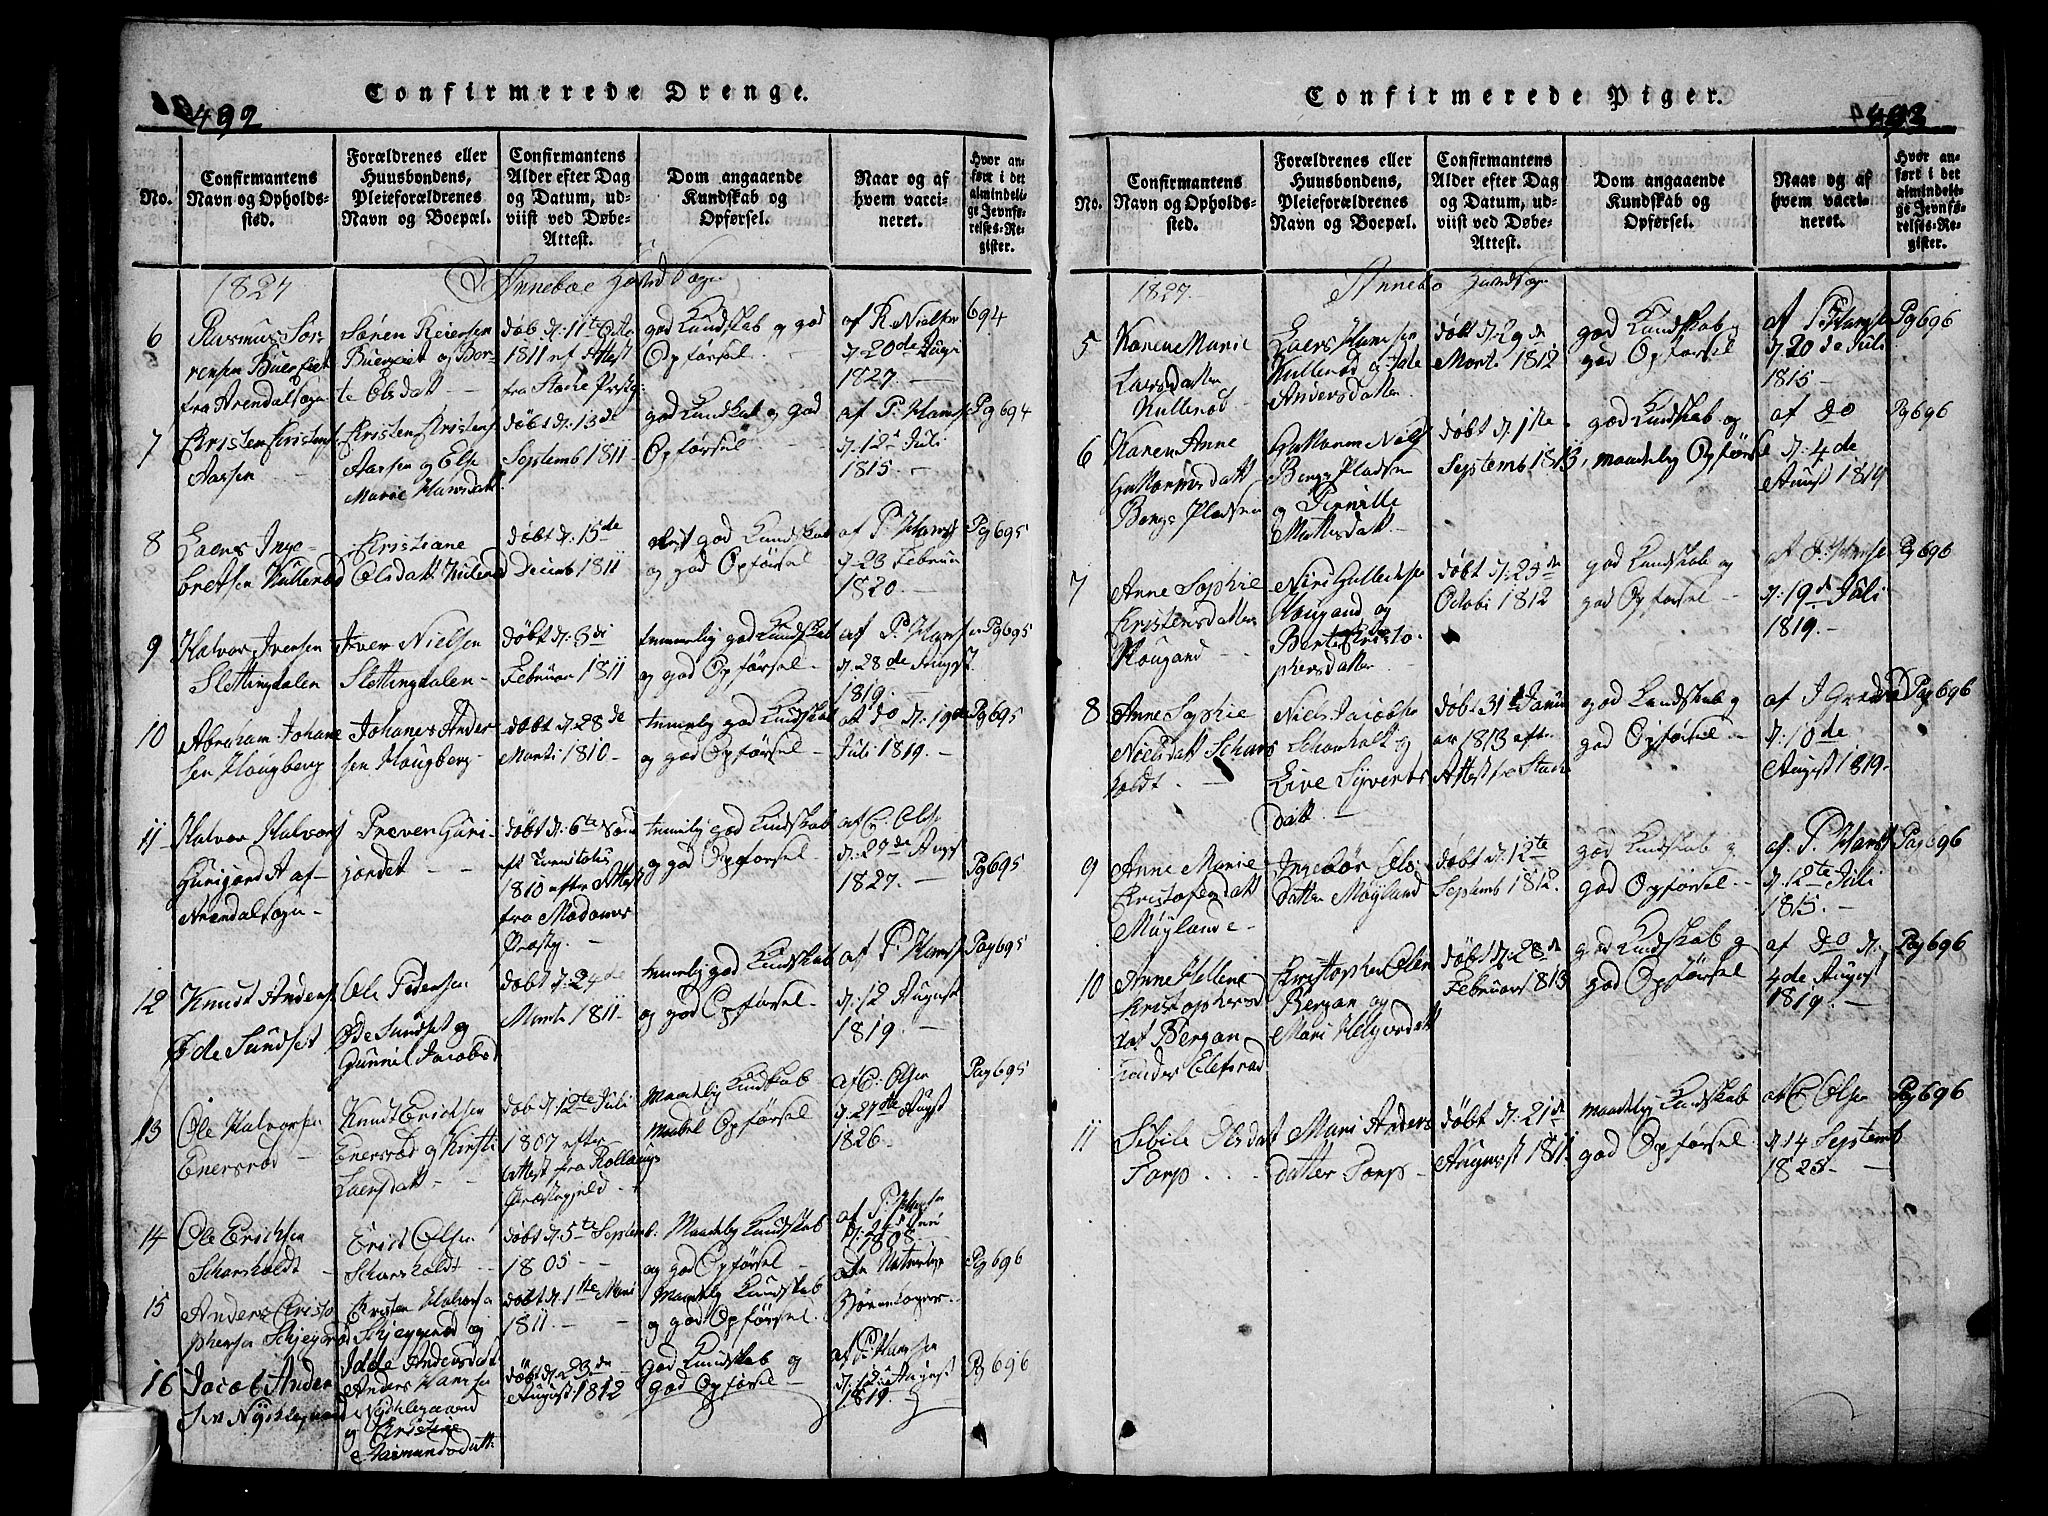 492
Confirmerede Drenge.
No.
Confirmantens
Navn og Opholds-
sted.
Forældrenes eller
Huusbondens,
Pleieforældrenes
Navn og Boepæl.
Confirmantens
Alder efter Dag
og Datum, ud-
viist ved Døbe-
Attest.
Dom angaaende
Kundskab og
Opførsel.
Naar og af
hvem vacci-
neret.
Hvor an-
ført i det
almindeli-
ge Jevnfø-
relses-Re-
gister.
1827
Anneboe Hoved Sogn
6
Rasmus Sør-
rensen Buerfeet
fra Arendalsogn
Søren Reiersen
Buerfeet og Bor-
te Olsdat
døb d. 11te Octo
1811 ef Attest
fra
god Kundskab og god
Opførsel
af R. Nielsen
d. 20de Augs
1827.
694
7
Kristen Kristens
Aasen
Kristen Kristens
Aasen og Else
Marie Hansdatt
døbt d. 13de
Septemb 1811
god Kundskab og god
Opførsel
af P. Hanse
d. 12 Juli
1815
Pg 694
8
Laers Inge-
bretsen Kullerød
Kristiane
Olsdatt Kullerød
døbt d. 15de
Decemb 1811
god Kundskab
og god Opførsel
af P. Hanse
d. 23 Februar
1820.
Pg 695
9
Halvor Iversen
Slettingdalen
Iver Nielsen
Slettingdalen
døbt d. 3di
Februar 1811
temmelig god Kundskab
og god Opførsel
af P. Hanse
d. 28de Augst
1819.
Pg 695
10
Abraham Johane
sen Hougberg
Johanes Ander-
sen Hougberg
døbt d. 28de
Marti 1810
temmelig god Kundskab
og god Opførsel
af do d. 19de
Juli 1819.
Pg 695
11
Halvor Halvors
Gurijordet af
Arendalsogn
Preven Guri-
jordet
døbt d. 6te Sønd
eft Trinitatis
1810 efter Attest
fra
temmelig god Kundskab
og god Opførsel
af C. Olse
d. 27de Augs
1827.
Pg 695
12
Knudt Anders
Øde Sundset
Ole Pedersen
Øde Sundset og
Gunnil Jacobsd
døbt d. 24de
Marti 1811
temmelig god Kundskab
og god Opførsel
af P. Hanse
d. 12 August
1819.
Pag 695
13
Ole Halvorsen
Enersrød
Knudt Ericksen
Enersrød og Kirsti
Laersdatt
døb d. 12te Juli
1807 efter
Attest fra Rollaugs
Præstegjeld
Maadelig Kundskab
Opførsel
af C. Olsen
d. 27de Augst
1826
Pag 695
14
Ole Ericksen
Scharsholdt
Erick Olsen
Scharsholdt
døbt d. 5te Septemb.
1805
Maadelig Kundskab
og god Opførsel
af P. Hanse
1808
Pg 696
15
Anders Cristo
phersen
Kristen Halvorse
og
Idde Andersdat
døbt d. 1ste Marti
1811
Maadelig Kundskab
og god Opførsel
16
Jacob Ander
sen
Anders Hansen
og Kristine
Aasmundsdatt
døbt d. 23de
August 1812
god Kundskab og
god Opførsel
af P. Hansen
d. 12 August
1819.
Pg 696
493
Confirmerede Piger.
No.
Confirmantens
Navn og Opholds-
sted.
Forældrenes eller
Huusbondens,
Pleieforældrenes
Navn og Boepæl.
Confirmantens
Alder efter Dag
og Datum, ud-
viist ved Døbe-
Attest.
Dom angaaende
Kundskab og
Opførsel.
Naar og af
hvem vacci-
neret.
Hvor an-
ført i det
almindeli-
ge Jevnfø-
relses-Re-
gister.
1827
Annebo Hoved Sogn
5
Karen Marie
Laersdatter
Kullerød
Laers Hansen
Kullerød og Idde
Andersdatter
døbt d. 29de
Marti 1812
god Kundskab og
god Opførsel
af P. Hanse
d. 20de Juli
1815
Pg 696
6
Karen Anne
Haagensdatt
Bergs Pladsen
Niels
Bergs Pladsen
og Pernille
Mattisdatt
døbt d. 1ste
Septemb 1813
god Kundskab og
maadelig Opførsel
af do
d. 4de
August 1819
Pg 696
7
Anne Sophie
Kristensdatter
Hougand
Hougand og
Berte Cristo-
phersdatter
døbt d. 25de
Octobr 1812
god Kundskab og
god Opførsel
af P. Hanse
d. 19de Juli
1819.
Pg 696
8
Anne Sophie
Nielsdatt Schars
holdt
Niels Jacobse
Scharsholt og
Live Syverts
datt.
døbt 31te Janu
ar 1813 efter
Attest fra
god Kundskab og
god Opførsel
af
d. 10de
August 1819.
Pag 696
9
Anne Marie
Kristophersdatt
Møylande
Ingebor Ols-
datter Møyland
døbt d. 12te
Septemb 1812.
god Kundskab og
god Opførsel
af P. Hanse
d. 12te Juli
1815.
Pag 696
10
Anne Hellene
Kristophers
dat Bergan
Kristopher Olsen
Bergan og
Mari
døbt d. 28de
Februar 1813
god Kundskab og
god Opførsel
af do d.
4de August
1819.
Pag 696
11
Sibile Olsdat
Torp
Mari Anders
datter Torp
døbt d. 21de
August 1811
maadelig Kundskab
god Opførsel
af C Olsen
d. 14 Septemb
1825
Pg 696